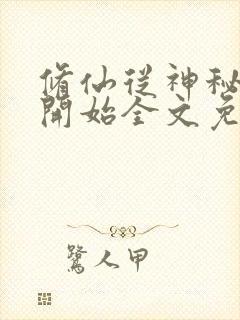 修仙從神秘
開始全文免
鷺人甲